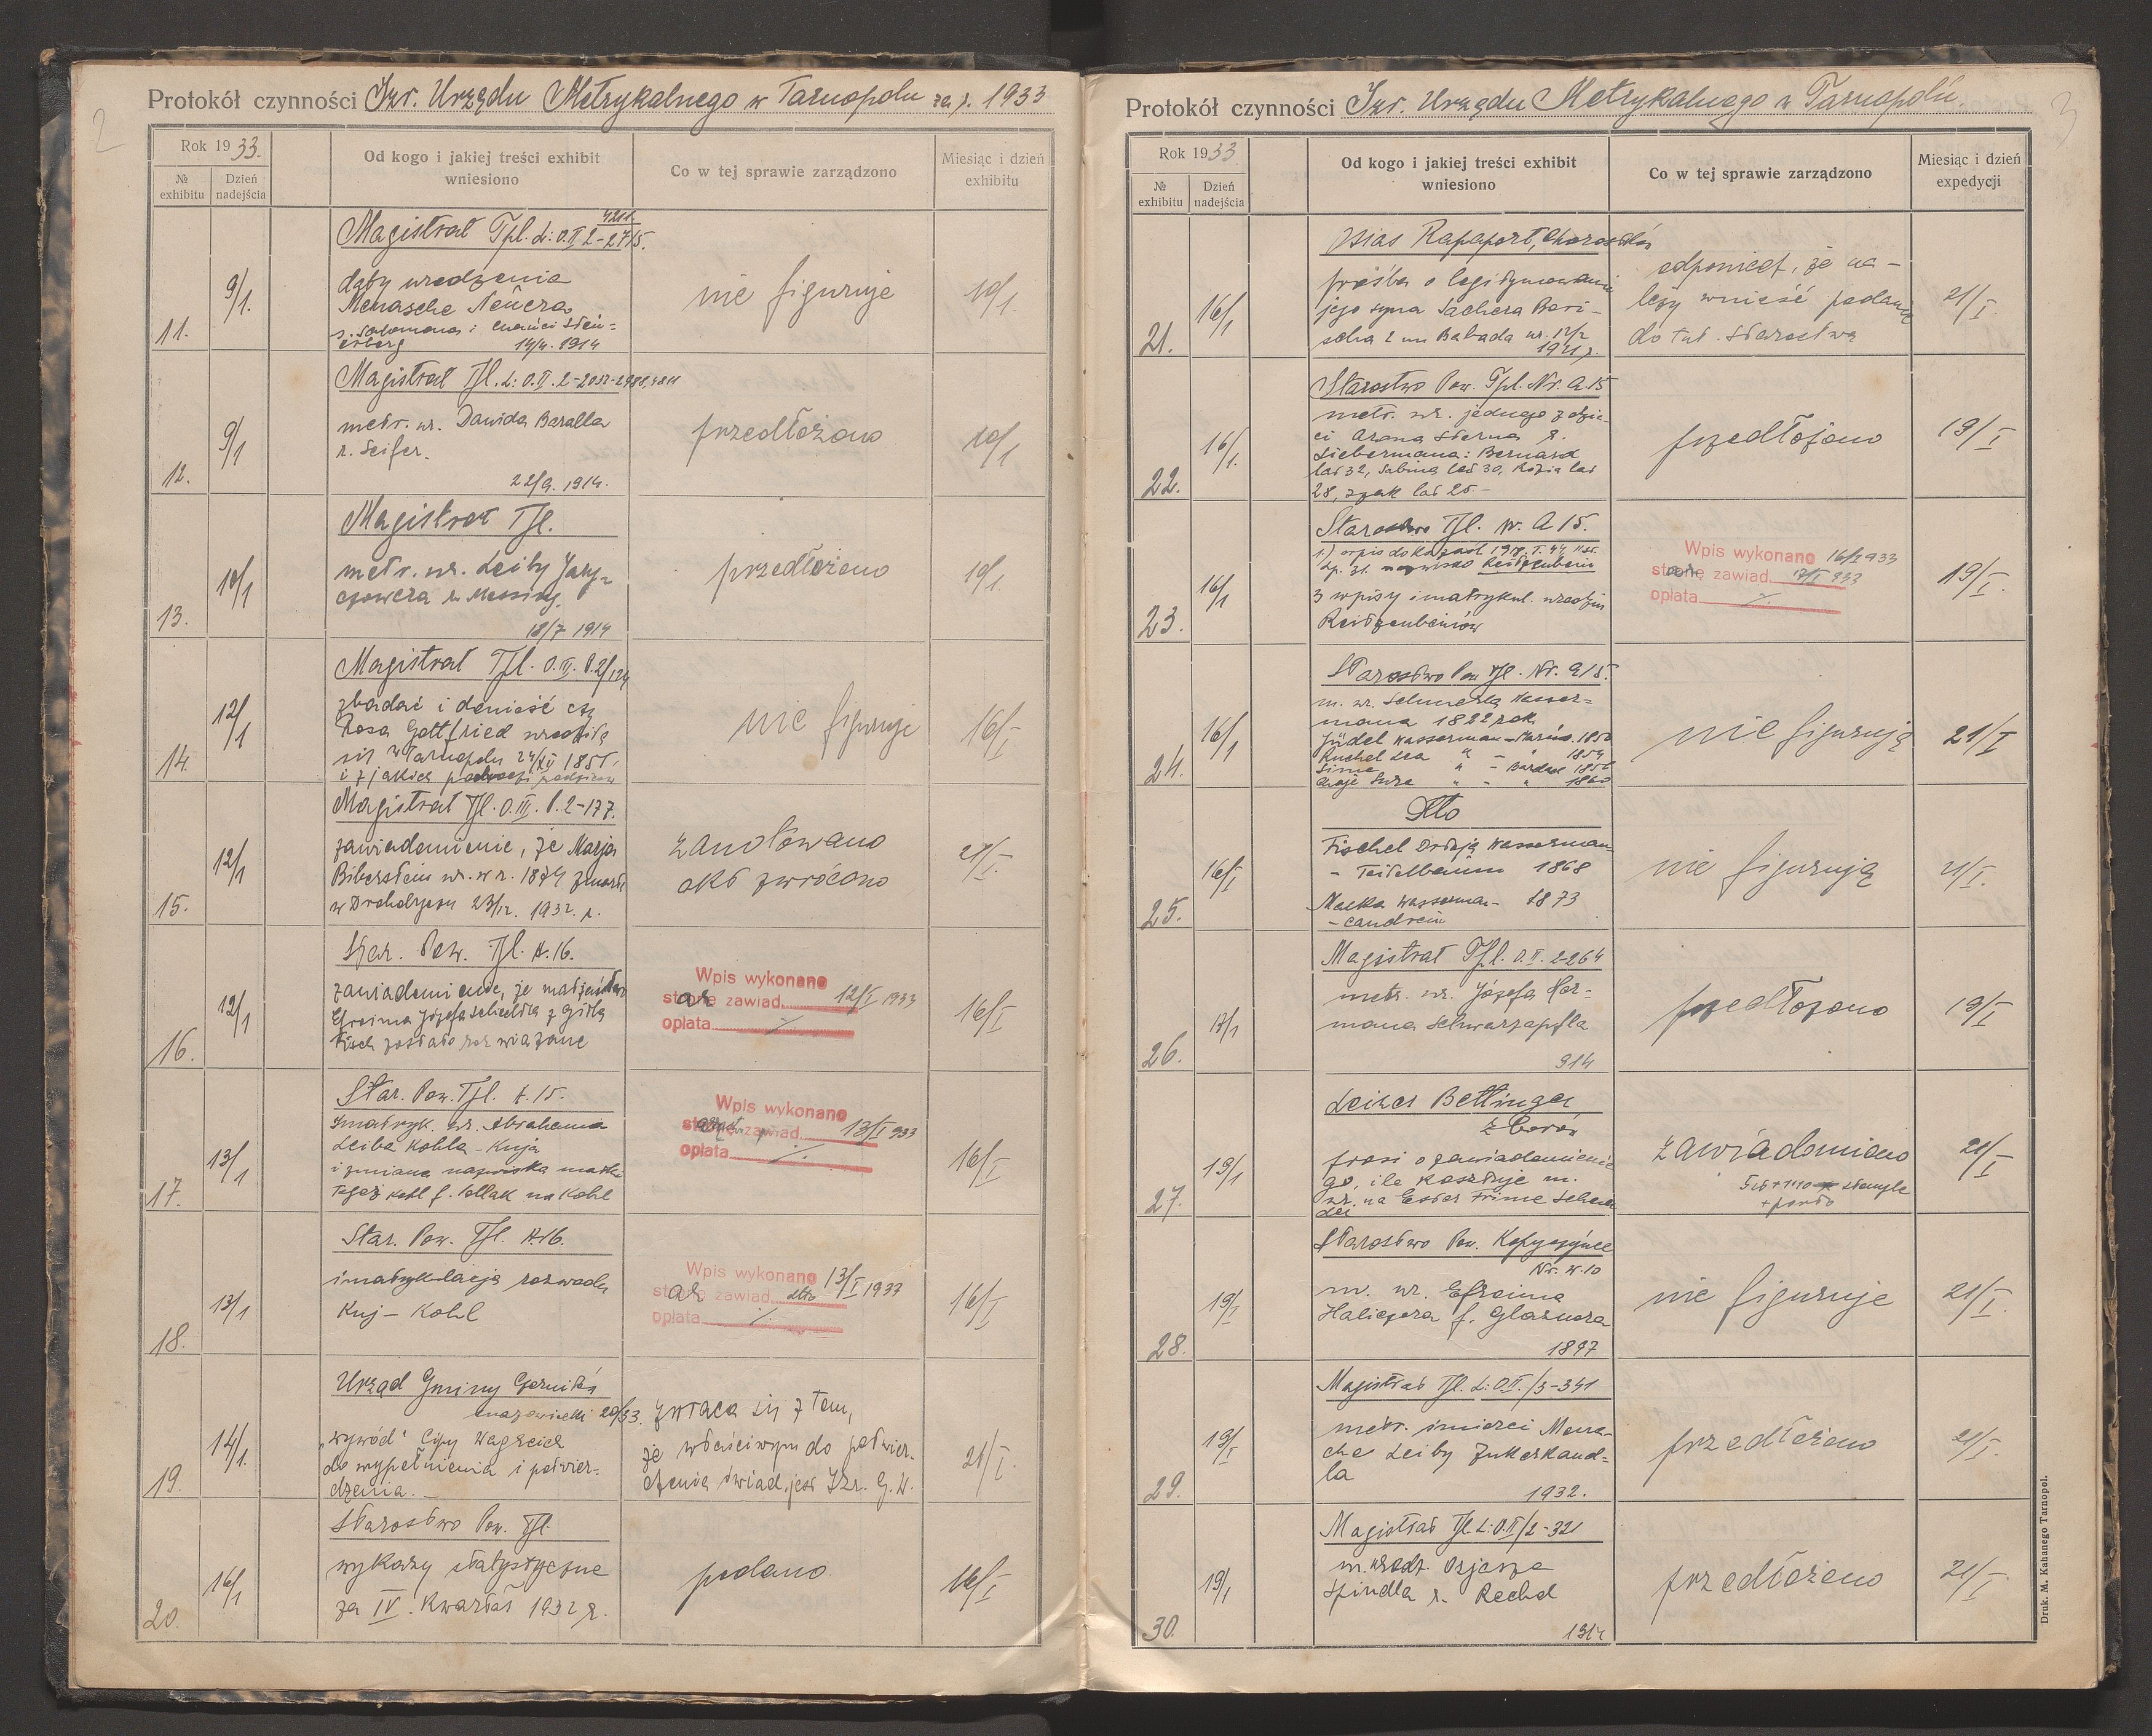 2
Protokół czynności Izr. Urzędu Metrykalnego w Tarnopolu za r. 1933
Rok 1933.
№ exhibitu
Dzień nadejścia
Od kogo i jakiej treści exhibit wniesiono
Co w tej sprawie zarządzono
Miesiąc i dzień exhibitu
Magistrat Tpl. L: O.II 2-2715.
4211
11.
9/1.
daty urodzenia
Menasche
s. Salomona i
14/4. 1914
nie figuruje
10/1.
Magistrat Tpl. L: O.II. 2-
12.
9/1
metr. ur. Dawida Baralla
r. Seifer.
22/9. 1914.
przedłożono
10/1
Magistrat Tpl.
13.
10/1
metr. ur. Leiby
18/7 1914
przedłożono
10/1.
Magistrat Tpl. O.III. P.2/124
14.
12/1
zbadać i donieść czy
Rosa Gottfried urodziła
się w Tarnopolu 24/XII 1855
i z jakich
nie figuruje
16/I
Magistrat Tpl. O.III. P.2-177.
15.
12/1
zawiadomienie, że Marja
Biberstein ur. w r. 1874 zmarła
w Drohobyczu 23/12. 1932. r.
zanotowano
akt zwrócono
21/I.
Star. Pow. Tpl. A.16.
16.
12/1
zawiadomienie, że małżeństwo
Efroima Józefa z Gitlą
Fisch zostało rozwiązane
Wpis wykonano
stronę zawiad. 12/I 1933
opłata
16/I
Star. Pow. Tpl. A.15.
17.
13/1
Imatryk. ur. Abrahama
Leiba Kohla - Kuja
i zmiana nazwiska matki
Tegoż Kohl f. Pollak na Kohl
Wpis wykonano
stronę zawiad. 13/I 933
opłata
16/I
Star. Pow. Tpl. A.16.
18.
13/1
imatrykulacja rozwodu
Kuj - Kohl
Wpis wykonano 13/I 1933
stronę zawiad.
opłata
16/I
Urząd Gminy
20/33.
19.
14/1.
"wywód" Cipy
do wypełnienia i potwier-
dzenia.
zwraca się z tem,
że właściwym do potwier-
dzenia świad. jest Izr. G. W.
21/I.
Starostwo Pow. Tpl.
20.
16/1
wykazy statystyczne
za IV. Kwartał 1932 r.
podano
16/I
3
Protokół czynności Izr. Urzędu Metrykalnego w Tarnopolu.
Rok 1933
№ exhibitu
Dzień nadejścia
Od kogo i jakiej treści exhibit wniesiono
Co w tej sprawie zarządzono
Miesiąc i dzień expedycji
Osias Rapaport, Chorostków
21.
16/1
prośba o legitymowanie
jego syna Sachera Bori-
scha 2 im Babada ur. 12/2
1921 r.
odpowiedź, że na-
leży wnieść podanie
do tut. Starostwa
21/I.
Starostwo Pow. Tpl. Nr. A.15
22.
16/1.
metr. ur. jednego z dzie-
ci Arona Sterna r.
Liebermana: Bernard
lat 32, Sabina lat 30, Rózia lat
28, Izak lat 25.-
przedłożono
19/I
Starostwo Tpl. Nr. A 15.
23.
16/1
3 wpisy imatrykul. urodzin
Wpis wykonano 16/I 933
stronę zawiad. 17/I 933
opłata
19/I.
Starostwo Pow Tpl. Nr. A15.
24.
16/1
m. ur. Wasser-
mana 1822 rok
Jüdel Wasserman - 1850
Ruchel Lea " - " 1854
1856
1860
nie figurują
21/I
Dto
25.
16/I
Fischel Wasserman
- Teitelbaum 1868
Malka Wasserman - 1873
nie figurują
21/I.
Magistrat Tpl. O.II. 2-264
26.
17/1
metr. ur. Józefa Her-
mana Schwarzapfla
914
przedłożono
19/I
Leizer Bettinger
Zborów
27.
19/1
prosi o zawiadomienie
go, ile kosztuje m.
ur. na Ester Frime
zawiadomiono
+ porto
21/I
Starostwo Pow. Kopyczyńce
Nr. W.10
28.
19/I
m. ur. Efroima
Haliczera f. Glaznera
1897
nie figuruje
21/I.
Magistrat Tpl. L: O.II./3-341
29.
19/I
metr. śmierci Mena-
che Leiby Zukerkand-
la
1932.
przedłożono
21/I.
Magistrat Tpl. L: O.II/2-321
30.
19/1
m. urodz. Ozjasza
Spindla r. Rechd
przedłożono
21/I
Druk. M. Kahanego Tarnopol.